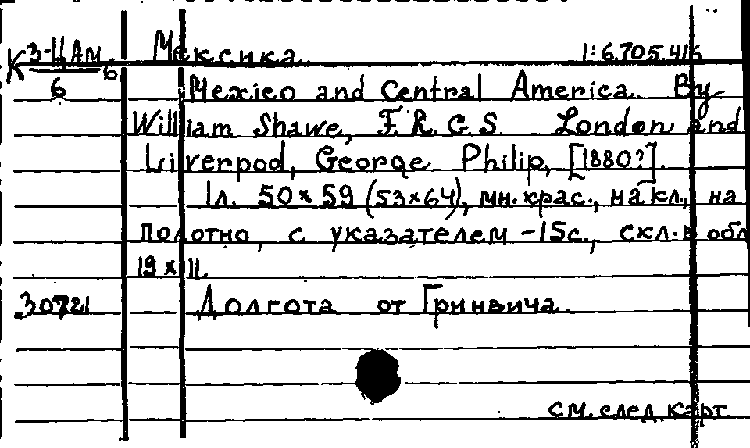 К 3-ЦАм/6 6 Мексика 1:6.705.416
Mexico and Central America. By
William Shawe, F.R.G.S. London and
Liverpool, George Philip, [1880?].
1л. 50×59 (53×64), мн.крас., на кл., на
полотно, с указателем -15с., скл. в обл
19 × 11.
30721 Долгота от Гринвича.
см. след. карт